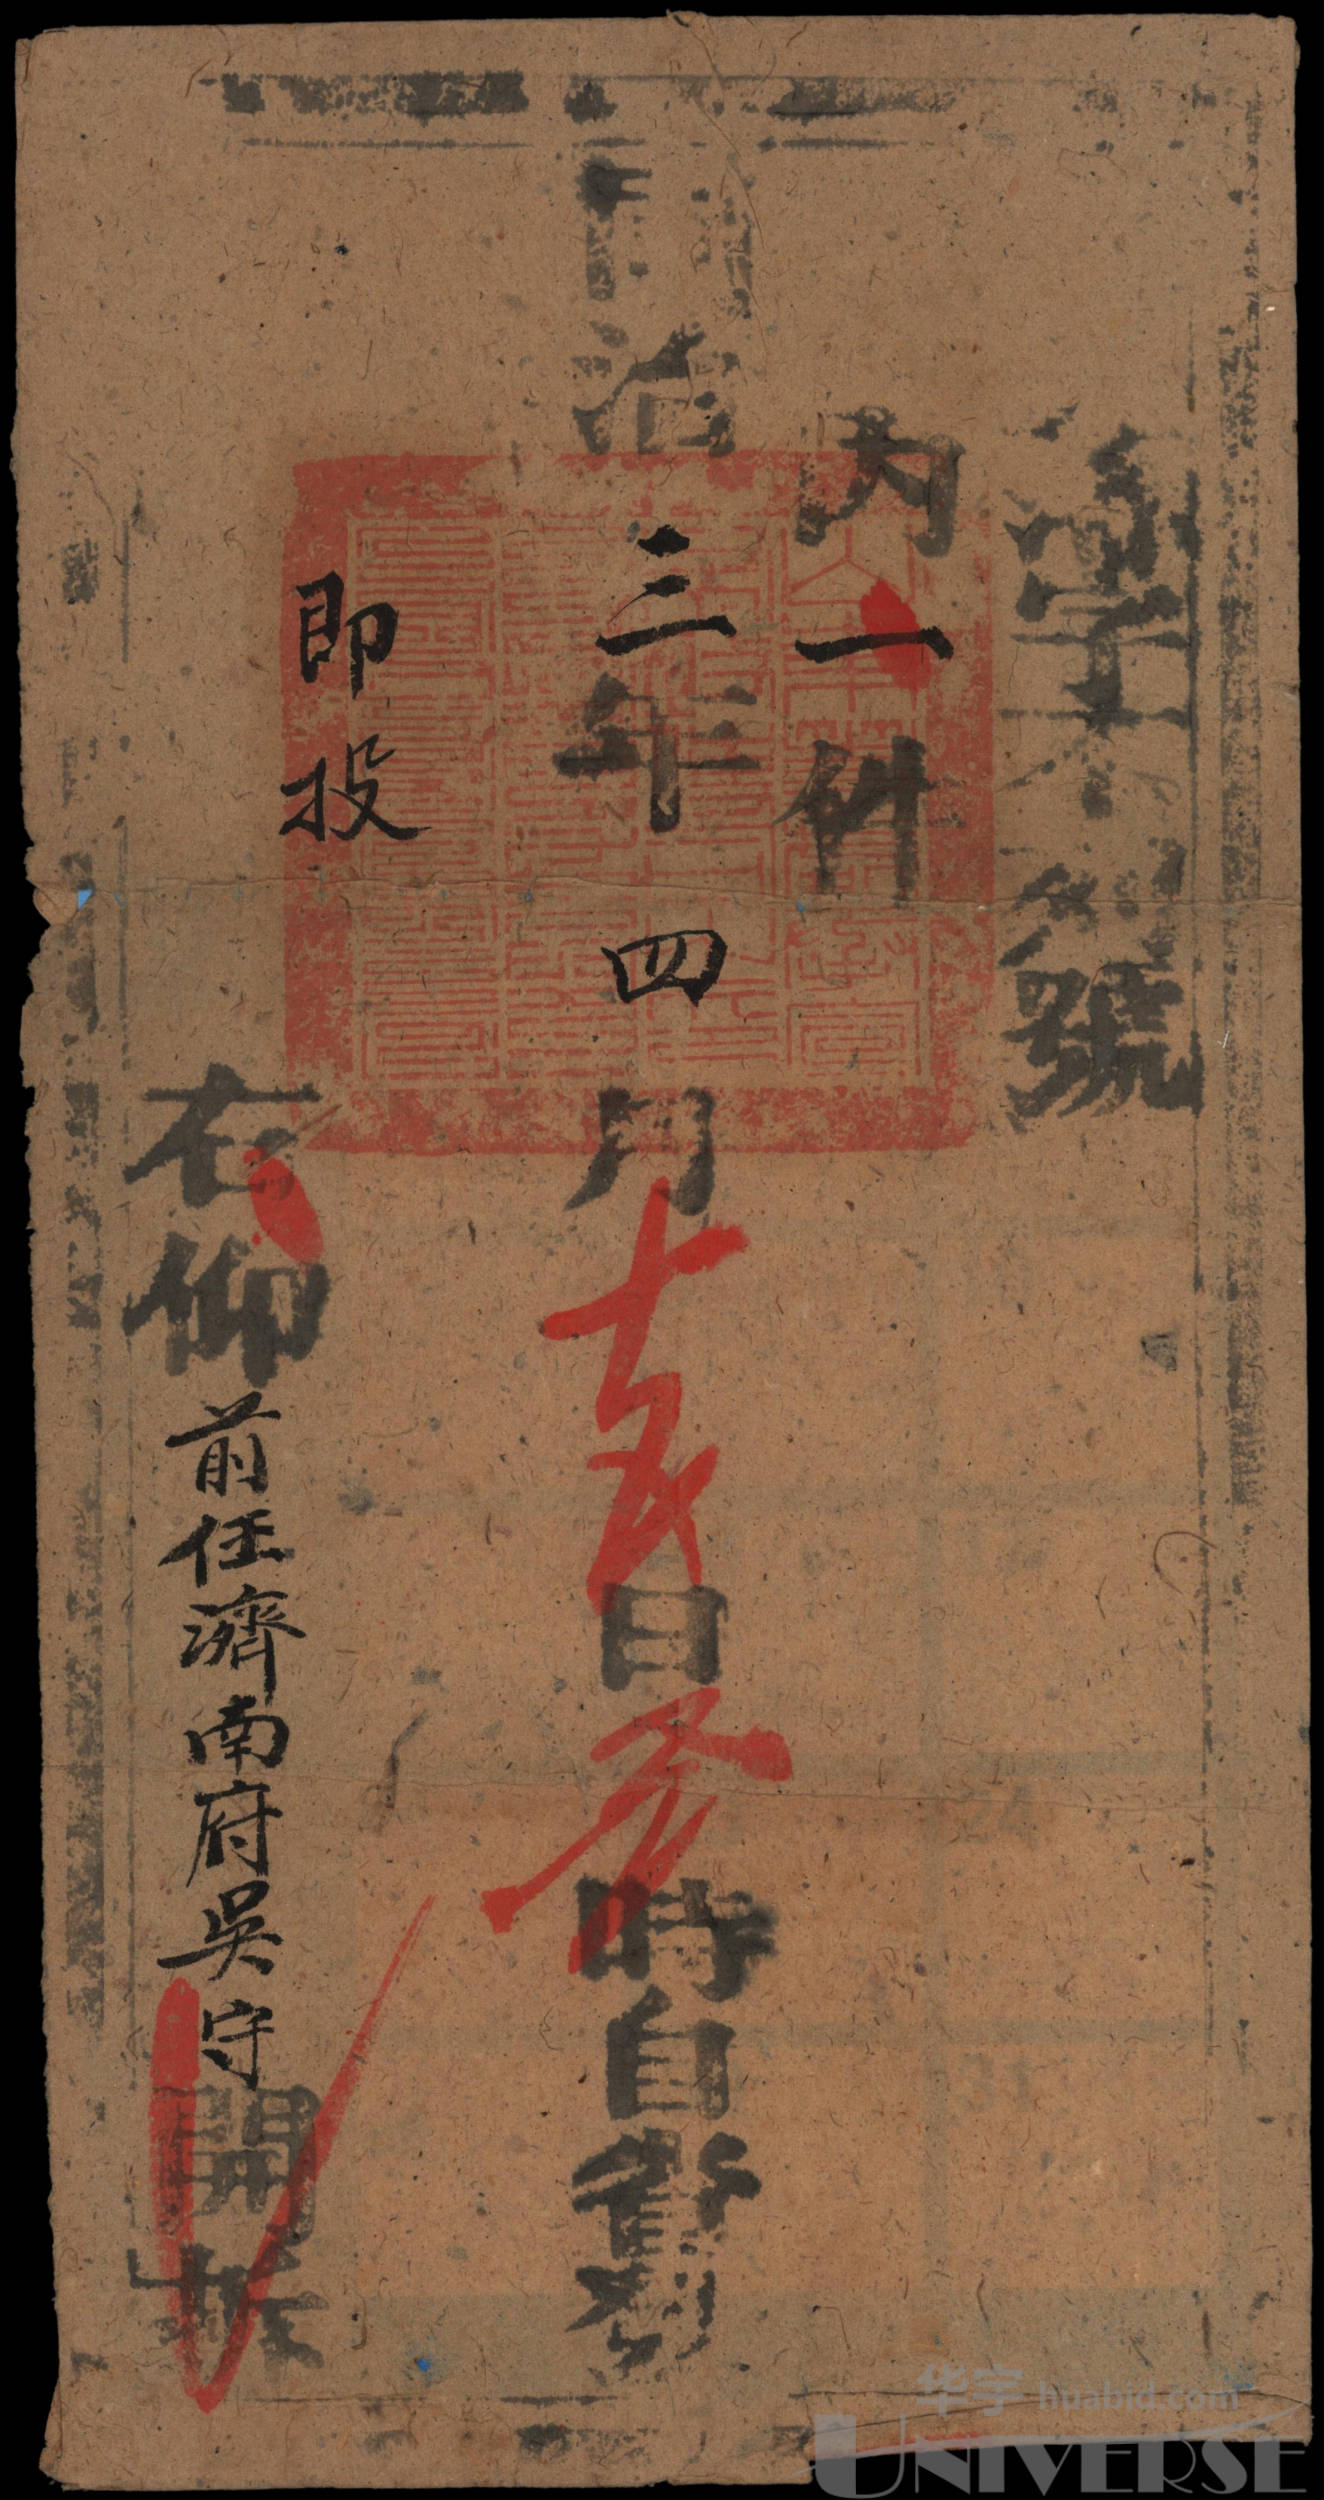 字 號
內一件
同治三年四月十六日 時自省發
即投
右仰前任濟南府吳守開拆
华宇 huabid.com
UNIVERSE